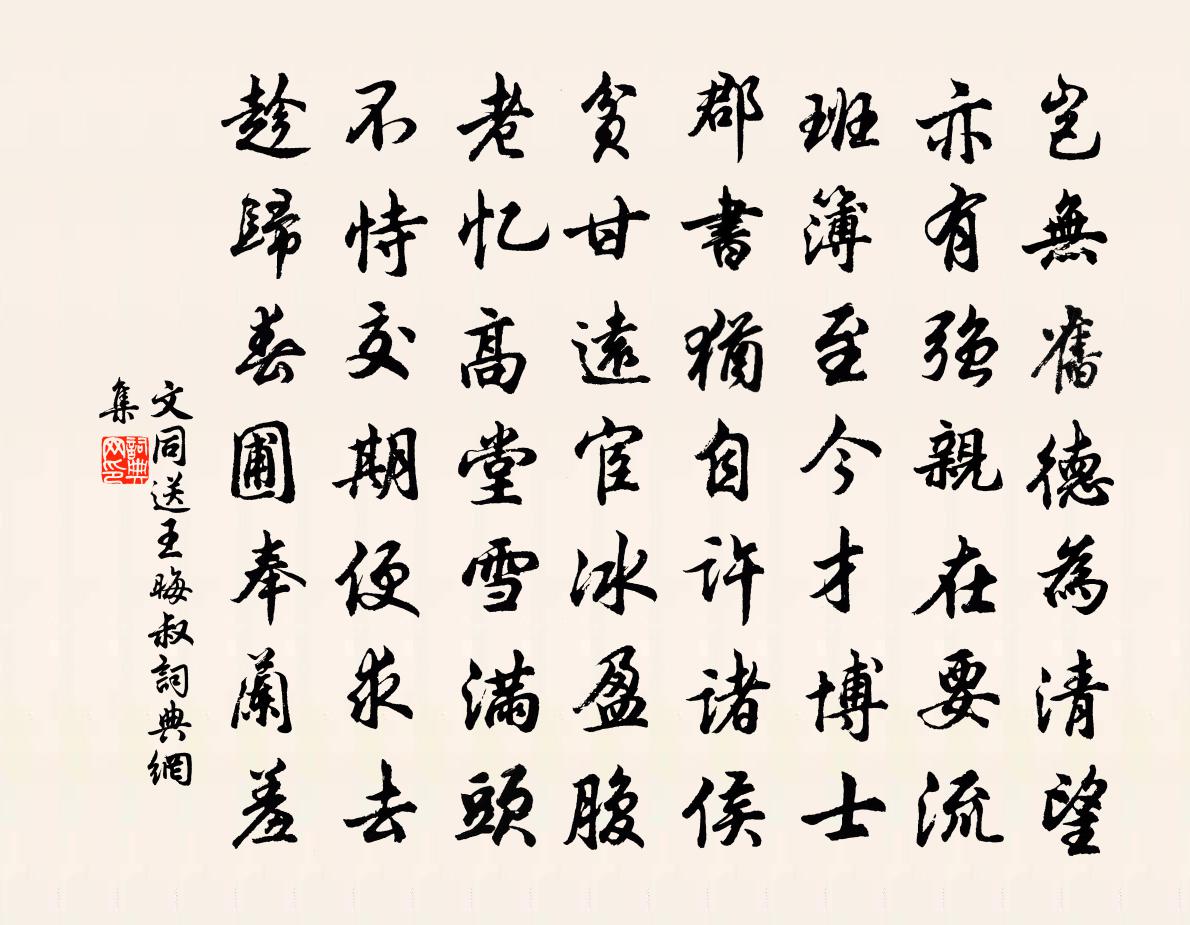 豈無舊德為清望
亦有強親在要流
班簿至今才博士
郡書猶自許諸侯
貧甘遠宦冰盈腹
老忆高堂雪滿頭
不恃交期便求去
趁歸春圃奉蘭羞
文同送王晦叔詞典網
集
詞典網印